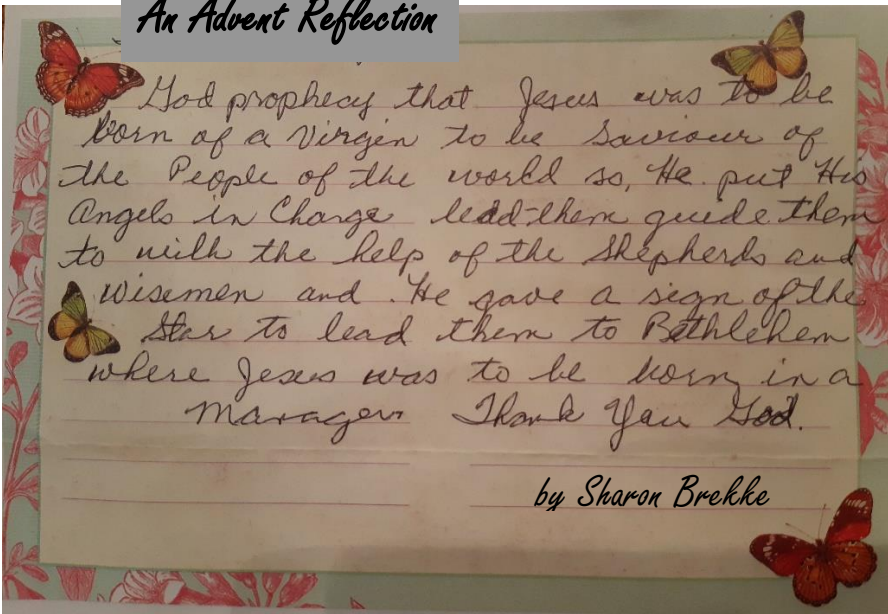 An Advent Reflection
God prophecy that Jesus was to be
born of a Virgin to be Saviour of
the People of the world so, He put His
Angels in Charge lead them guide them
to with the help of the Shepherds and
wisemen and He gave a sign of the
Star to lead them to Bethlehem
where Jesus was to be born in a
Manager Thank You God.
by Sharon Brekke